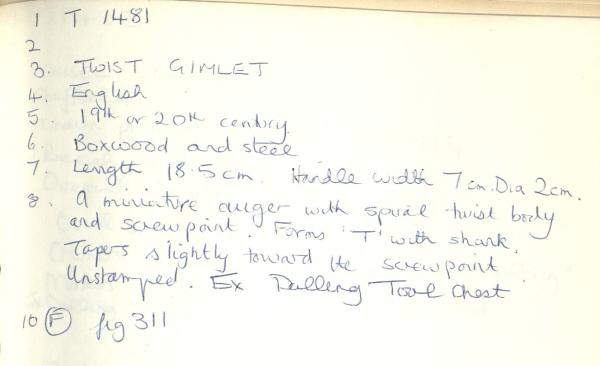 1 T 1481
2
3. TWIST GIMLET
4. English
5. 19th or 20th century.
6. Boxwood and steel
7. Length 18.5cm. Handle width 7cm. Dia 2cm.
8. A miniature auger with spiral twist body
and screwpoint. Forms 'T' with shank.
Tapers slightly toward the screwpoint
Unstamped. Ex Tool Chest
10 (F) fig 311